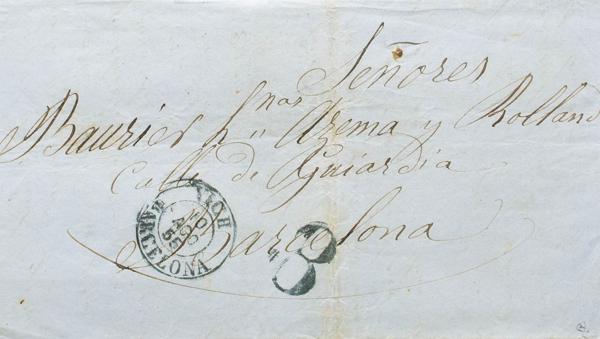 Señores
Baurier h.nos Azema y Rolland
Calle de Guiardia
Barcelona
VICH
10 AGO 55
BARCELONA
8